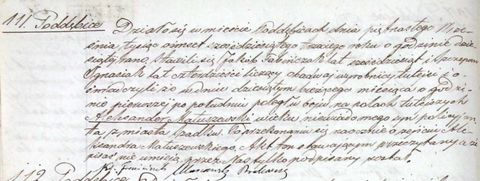 111. Poddębice
Działo się w mieście Poddębicach dnia piętnastego Wrze=
śnia, tysiąc ośmset sześćdziesiątego trzeciego roku o godzinie dzie
siątej rano, Stawili się Jakób lat sześćdziesiąt i Szczepan
Ignaciak lat czterdzieści liczący obadwaj wyrobnicy tutejsi i o=
świadczyli że w dniu dziesiątym bieżącego miesiąca o godzi
nie pierwszej po południu poległ w boju na polach tutejszych
Aleksander Matuszewski wieku niewiadomego syn
z miasta Przekonawszy się naocznie o zejściu Ale
ksandra Matuszewskiego, Akt ten stawającym przeczytany a że
pisać nie umieją przez Nas tylko podpisany został.
112. Poddębice